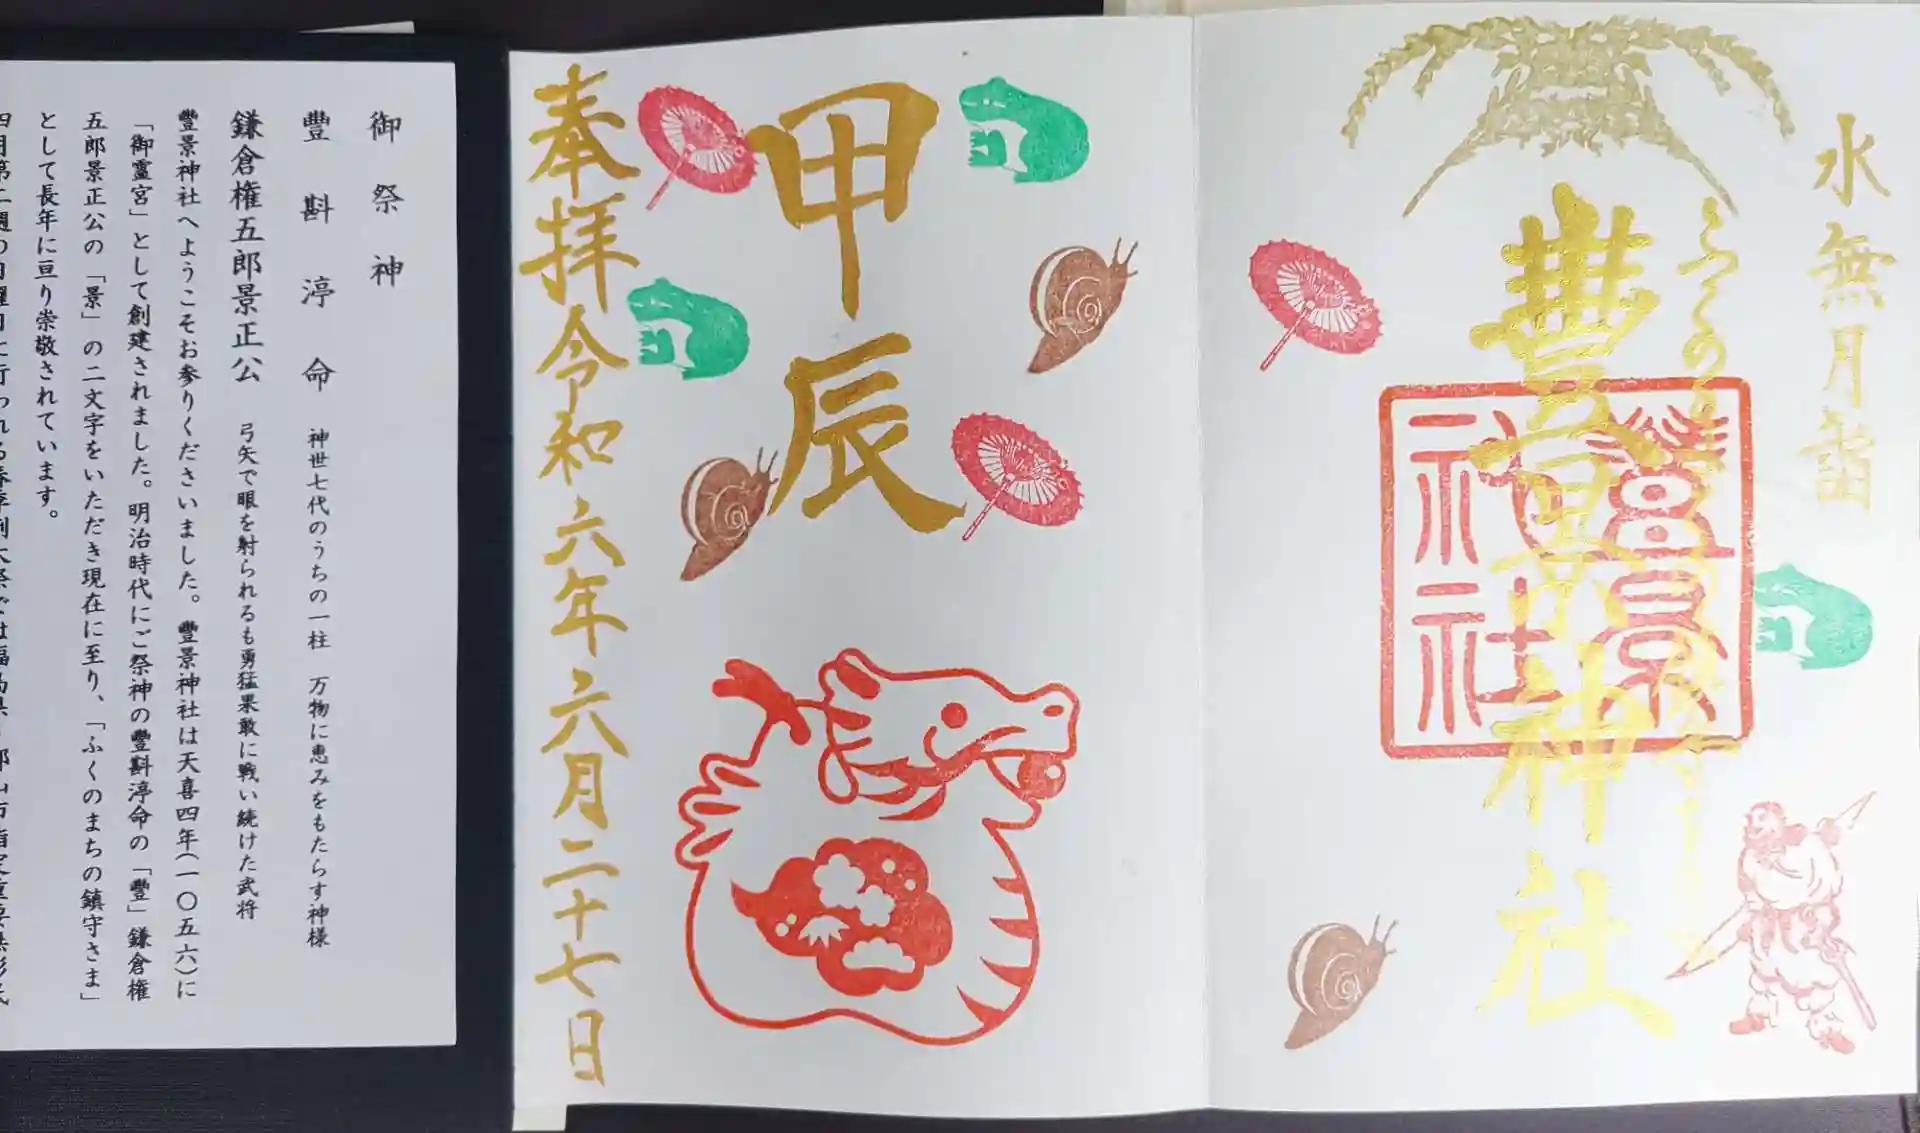 水無月詣
ふくの
豊景神社
豊景神社
甲辰
奉拝令和六年六月二十七日
御祭神
豊斟渟命 神世七代のうちの一柱 万物に恵みをもたらす神様
鎌倉権五郎景正公 弓矢で眼を射られるも勇猛果敢に戦い続けた武将
豊景神社へようこそお参りくださいました。豊景神社は天喜四年(一〇五六)に
「御霊宮」として創建されました。明治時代にご祭神の豊斟渟命の「豊」鎌倉権
五郎景正公の「景」の二文字をいただき現在に至り、「ふくのまちの鎮守さま」
として長年に亘り崇敬されています。